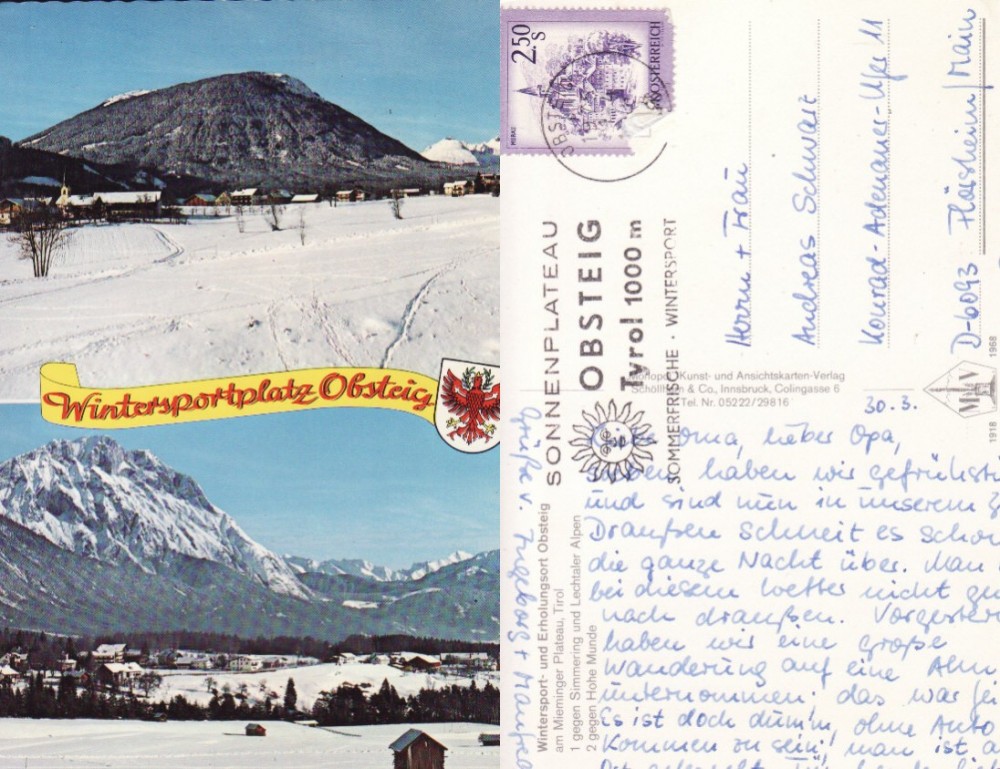 Wintersportplatz Obsteig
2.50
S
REPUBLIK ÖSTERREICH
MURAU
OBST
SONNENPLATEAU
OBSTEIG
Tyrol 1000 m
SOMMERFRISCHE · WINTERSPORT
Herrn + Frau
Andreas Schwarz
Konrad-Adenauer-Ufer 11
D-6093 Flörsheim/Main
Kunst- und Ansichtskarten-Verlag
& Co., Innsbruck, Colingasse 6
Tel. Nr. 05222/29816
1918
1968
Wintersport- und Erholungsort Obsteig
am Mieminger Plateau, Tirol
1 gegen Simmering und Lechtaler Alpen
2 gegen Hohe Munde
30.3.
Oma, lieber Opa,
haben wir gefrühsti
und sind nun in unserem
Draußen schneit es scho
die ganze Nacht über. Man
bei diesem Wetter nicht gu
nach draußen. Vorgester
haben wir eine große
Wanderung auf eine Alm
unternommen; das war
Es ist doch dumm, ohne Auto
kommen zu sein, man ist a
Grüße v. Ingeborg + Manfred